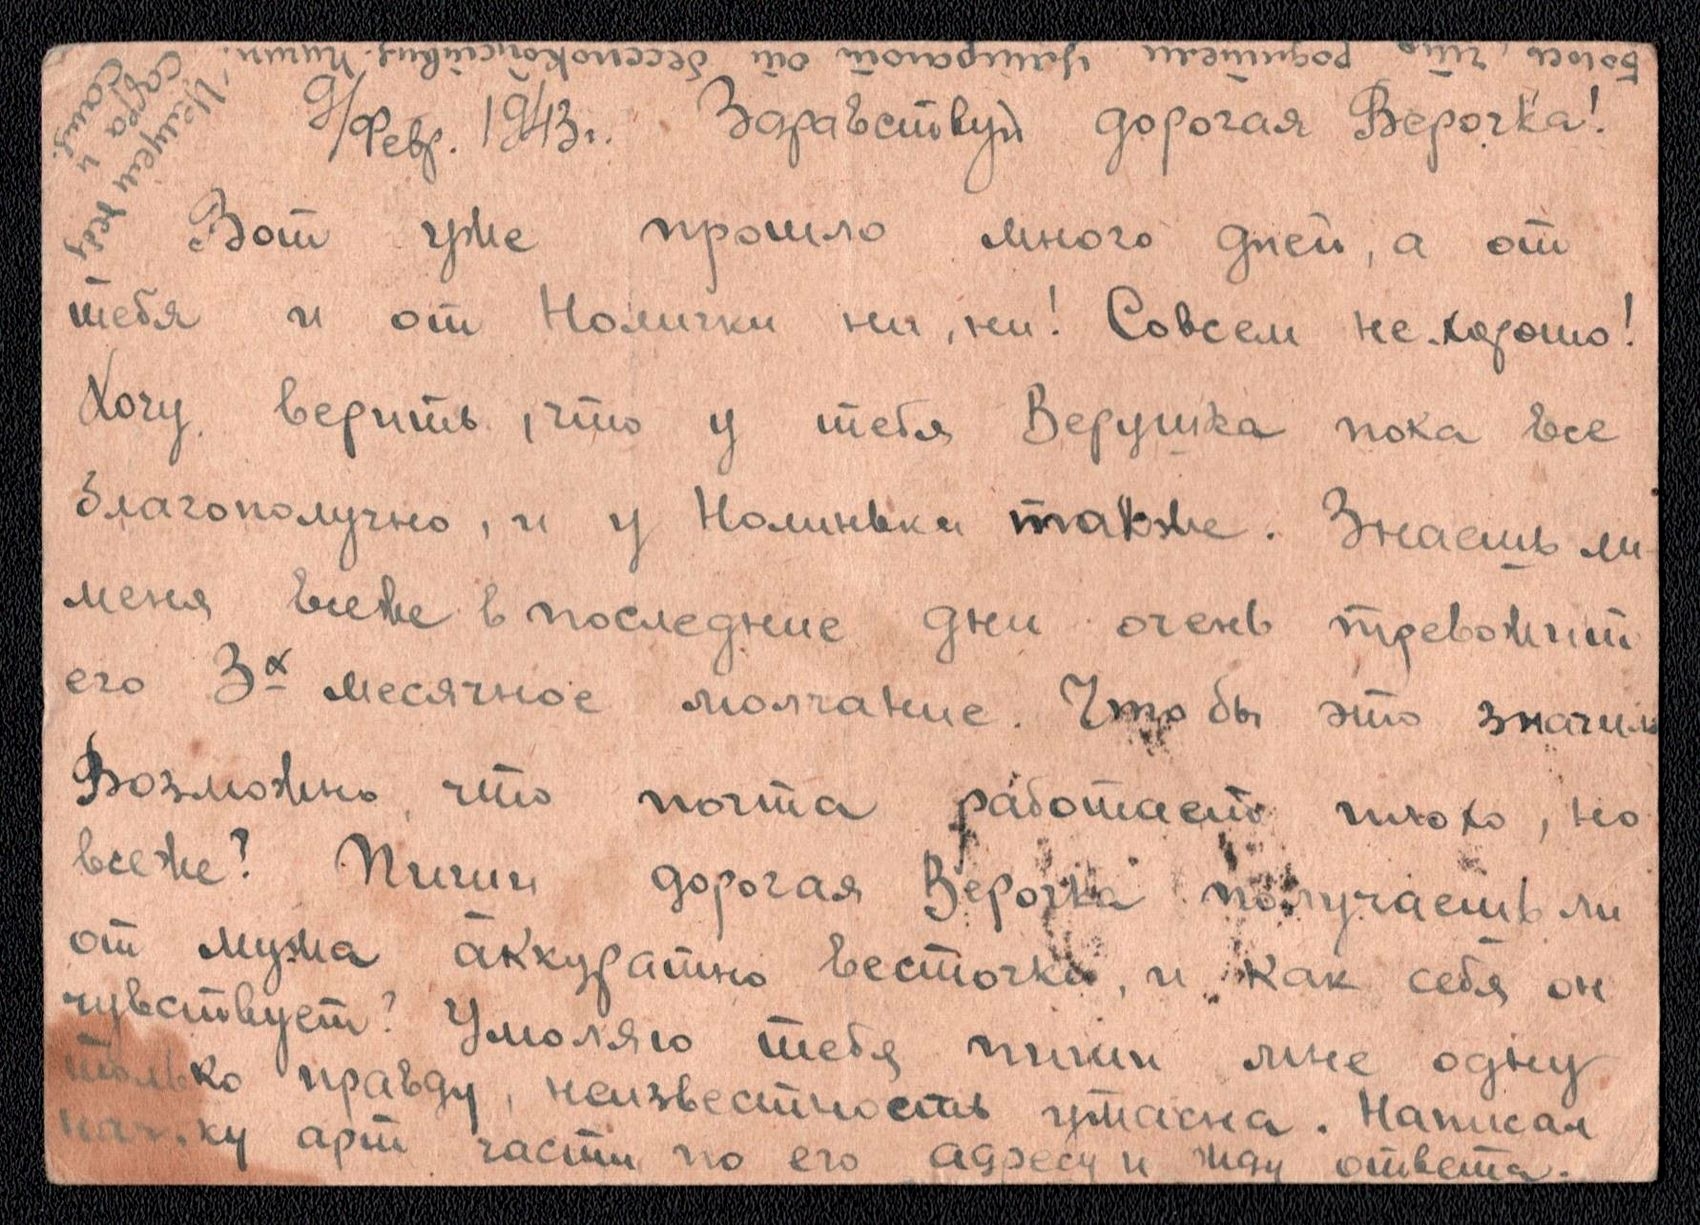 9/Февр. 1943г. Здравствуй дорогая Верочка!
Вот уже прошло много дней, а от
тебя и от Номички ни, ни! Совсем не хорошо!
Хочу верить, что у тебя Верушка пока все
благополучно, и у Номиньки также. Знаешь ли
меня все же в последние дни очень тревожит
его 3х месячное молчание. Что бы это значило
Возможно, что почта работает плохо, но
все же? Пиши дорогая Верочка получаешь ли
от мужа аккуратно весточки, и как себя он
чувствует? Умоляю тебя пиши мне одну
только правду, неизвестность ужасна. Написал
нач-ку арт части по его адресу и жду ответа.
Боюсь, что родители умирают от беспокойствия. Пиши.
Целуем тебя
Сафра и
Саша.